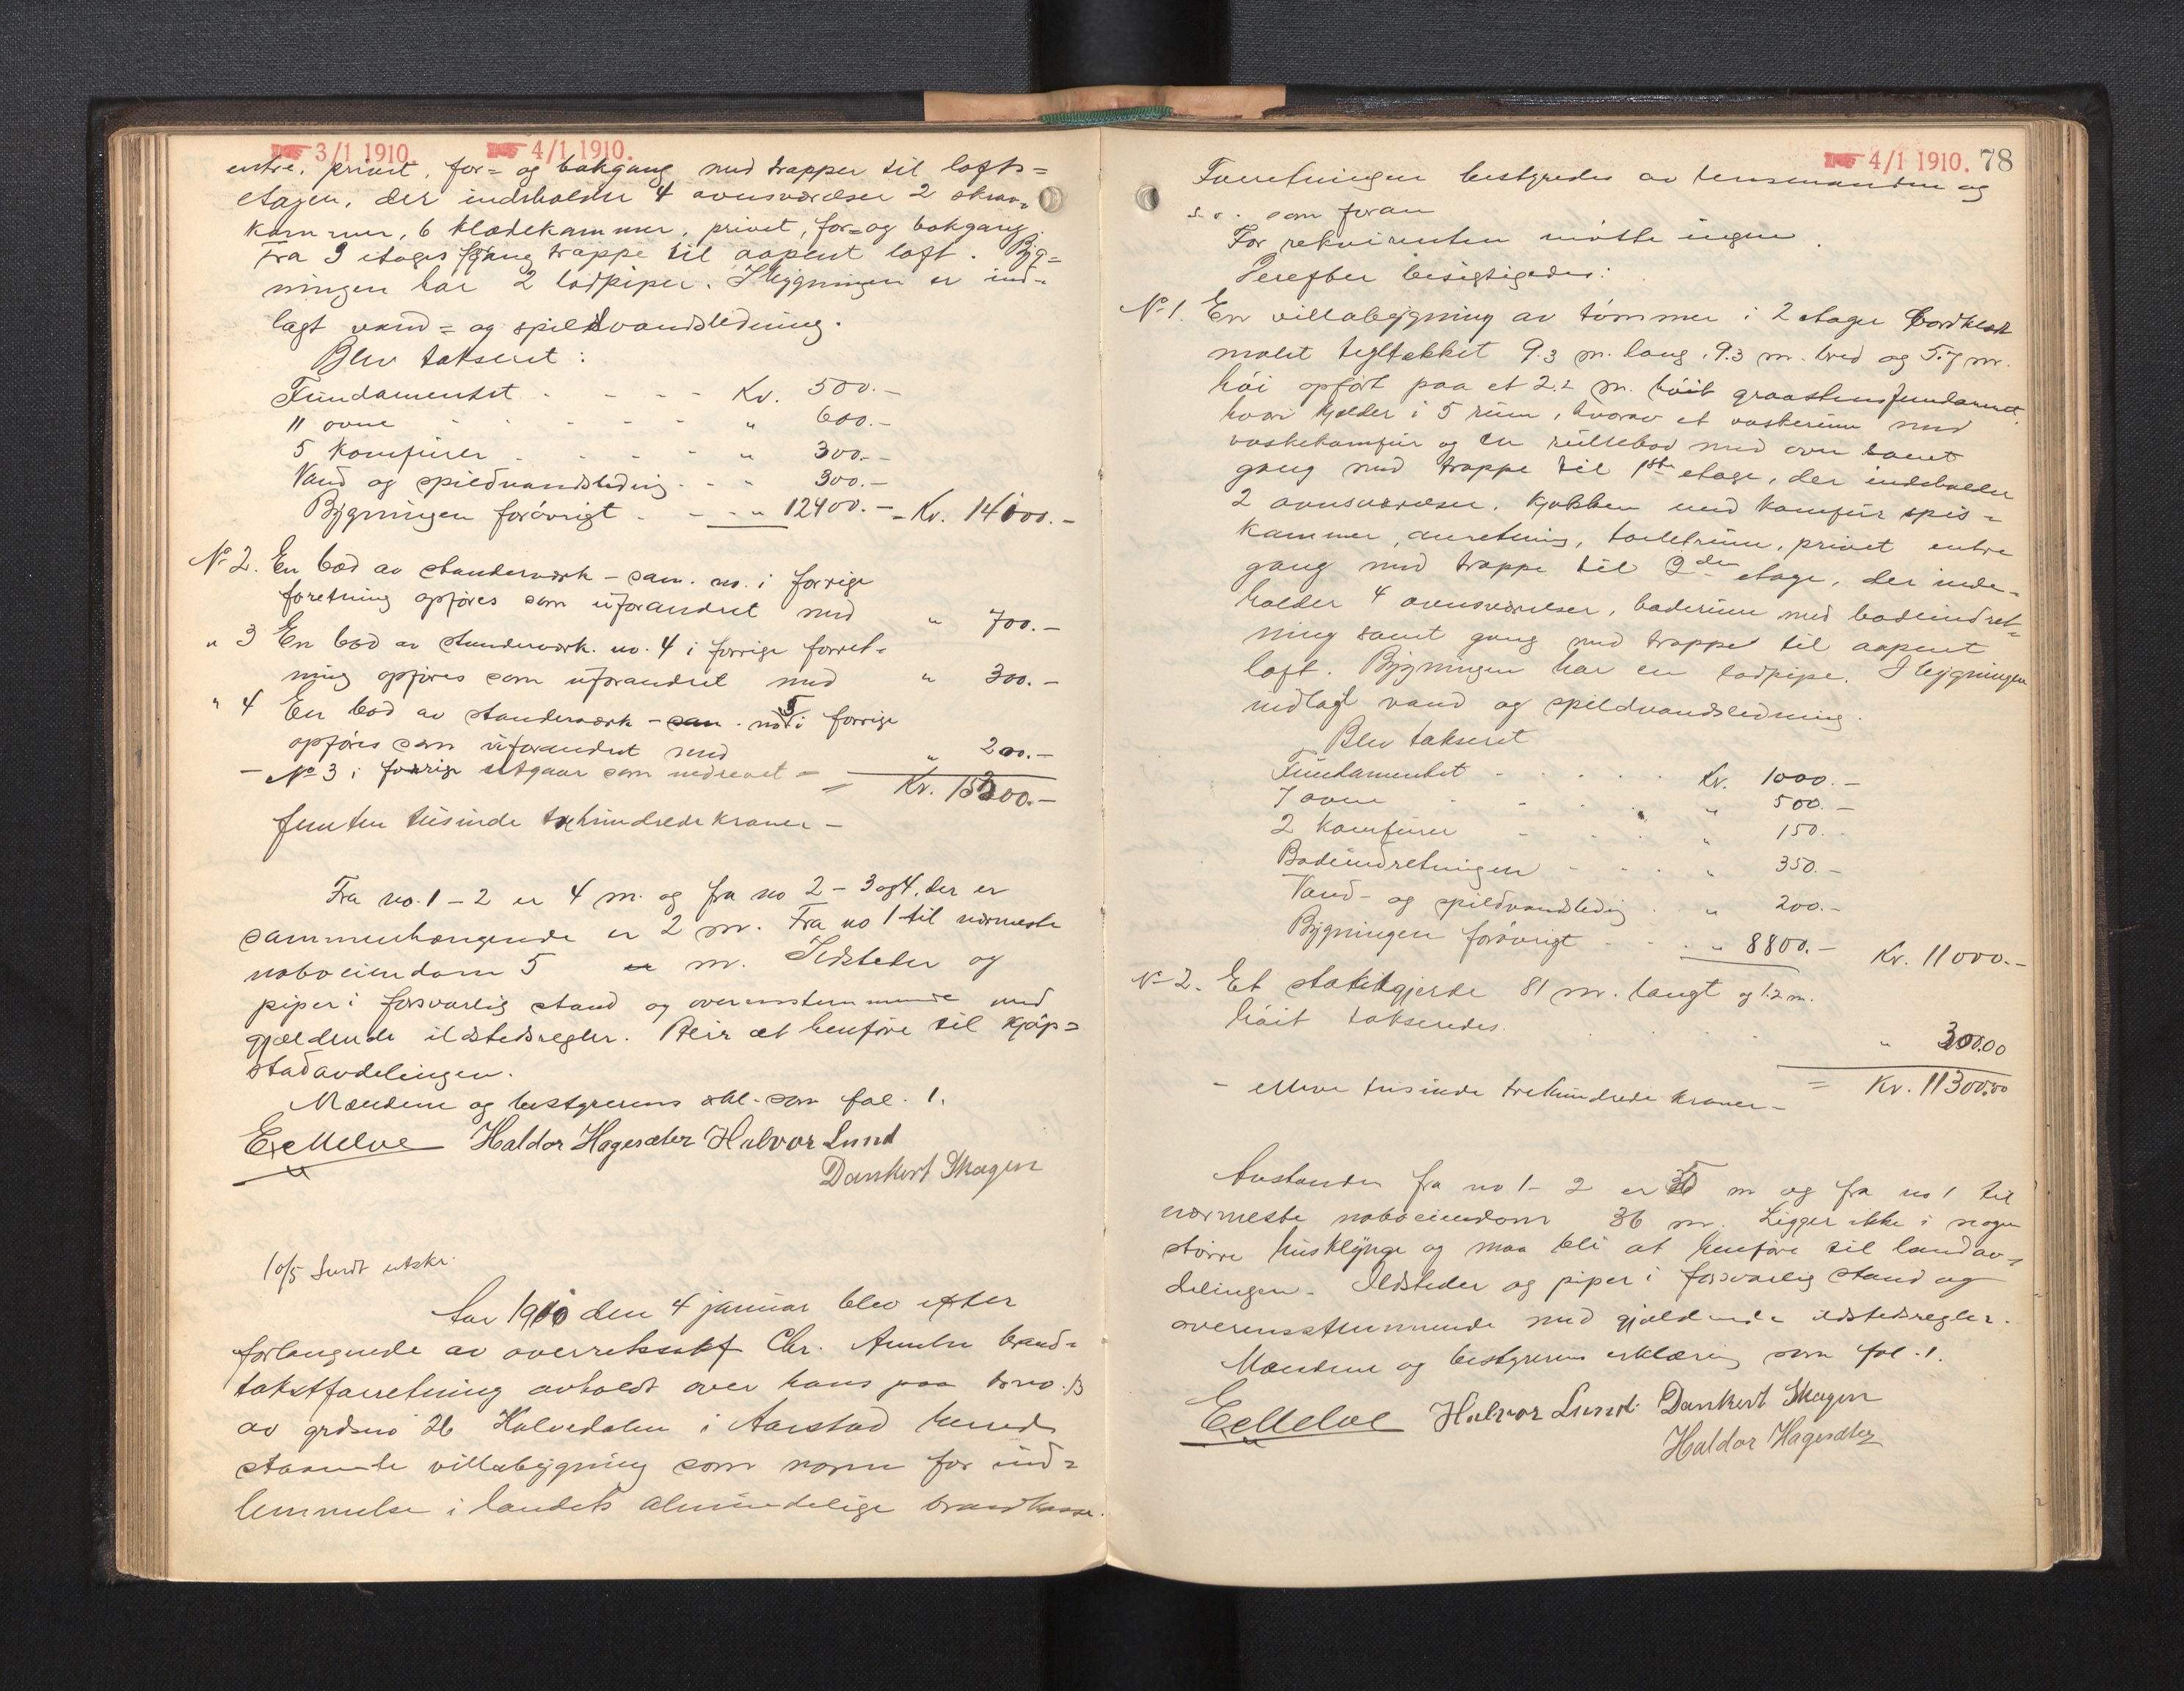 3/1 1910. 4/1 1910.
entre, privet, for- og bakgang med trapper til lofts=
etagen, der indeholder 4 ovnsværelser 2 skraa=
kammer, 6 klædekammer, privet, for= og bakgang
Fra 3 etages gang trappe til aapent loft. Byg=
ningen har 2 lodpiper. I bygningen er ind=
lagt vand= og spildvandsledning.
Blev takseret:
Fundamentet . - - - Kr. 500.-
11 ovne - - - - - " 600.-
5 Komfurer . . . . - " 300.-
Vand og spildvandsledning - - " 300.-
Bygningen forøvrigt . - - " 12400.- = Kr. 14100.-
No 2. En bod av standerværk - sam. no. i forrige
foretning opføres som uforandret med " 700.-
" 3 En bod av standerværk. no. 4 i forrige forret=
ning opføres som uforandret med " 300.-
" 4 En bod av standerværk - sam. no 5 i forrige
opføres som uforandret med " 200.-
- No 3 i forrige utgaar som nedrevet = = Kr. 15300.-
femten tusinde trehundrede kroner -
Fra no. 1 - 2 er 4 m. og fra no 2 - 3 og 4, der er
sammenhængende er 2 m. Fra no 1 til nærmeste
naboeiendom 5 er m. Ildsteder og
piper i forsvarlig stand og overensstemmende med
gjældende ildstedsregler. Blir at henføre til kjøp=
stadavdelingen.
Mændene og bestyrerens erkl. som fol. 1.
E Melve Haldor Hagesæter Halvor Lund
Dankert Skagen
10/5 Sendt utskr.
Aar 1910 den 4 januar blev efter
forlangende av overretssakf Chr. brand=
takstforretning avholdt over hans paa brno. 13
av grdsno 26 Kalvedalen i Aarstad herred
staaende villabygning som norm for ind=
lemmelse i landets almindelige brandkasse.
4/1 1910. 78
Forretningen bestyredes av lensmanden og
s. v. som foran
For rekvirenten møtte ingen.
Derefter besigtigedes:
No 1. En villabygning av tømmer i 2 etager bordklædt
malet tegltækket 9.3 m. lang, 9.3 m. bred og 5.7 m.
høi opført paa et 2.2 m. høit graastensfundament
hvori kjelder i 5 rum, hvorav et vaskerum med
vaskekomfur og en rullebod med ovn samt
gang med trappe til 1ste etage, der indeholder
2 ovnsværelser, kjøkken med komfur spis=
kammer, anretning, toiletrum, privet entre
gang med trappe til 2den etage, der inde=
holder 4 ovnsværelser, baderum med badeindret=
ning samt gang med trappe til aapent
loft. Bygningen har en lodpipe. I bygningen
indlagt vand og spildvandsledning.
Blev takseret
Fundamentet - . . . . Kr. 1000.-
7 ovne - - . . " 500.-
2 Komfurer - . . . " 150.-
Badeindretningen - - . . " 350.-
Vand- og spildvandsledng . " 200.-
Bygningen forøvrigt - . . " 8800.- Kr. 11000.-
No 2. Et stakitgjerde 81 m. langt og 1.2 m.
høit takseredes . . . " 300.00
- elleve tusinde trehundrede kroner - = Kr. 11300.00
Avstanden fra no 1 - 2 er m og fra no 1 til
nærmeste naboeiendom 36 m. Ligger ikke i nogen
større husklynge og maa bli at henføre til landav=
delingen. Ildsteder og piper i forsvarlig stand og
overensstemmende med gjældende ildstedsregler.
Mændene og bestyrerens erklæring som fol. 1.
E Melve Halvor Lund Dankert Skagen
Haldor Hagesæter